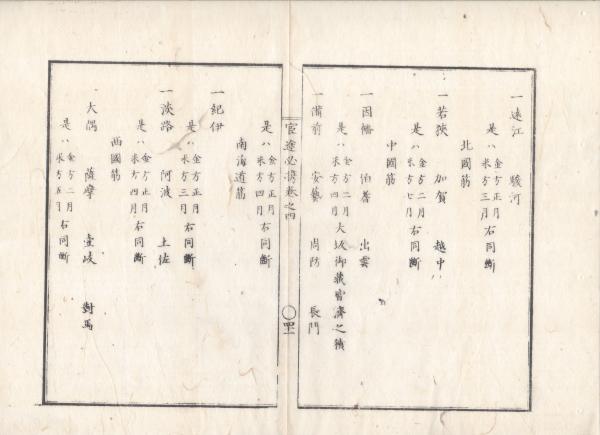 一遠江 駿河
是ハ金方正月米方三月右同断
北國筋
一若狹 加賀 越中
是ハ金方二月米方七月右同断
中國筋
一因幡 伯耆 出雲
是ハ金方二月米方四月大坂御藏皆濟之積
一備前 安藝 周防 長門
是ハ金方正月米方四月右同断
南海道筋
官途必携巻之四
一紀伊
是ハ金方正月米方三月右同断
一淡路 阿波 土佐
是ハ金方正月米方四月右同断
西國筋
大隅 薩摩 壹岐 對馬
是ハ金方二月米方五月右同断